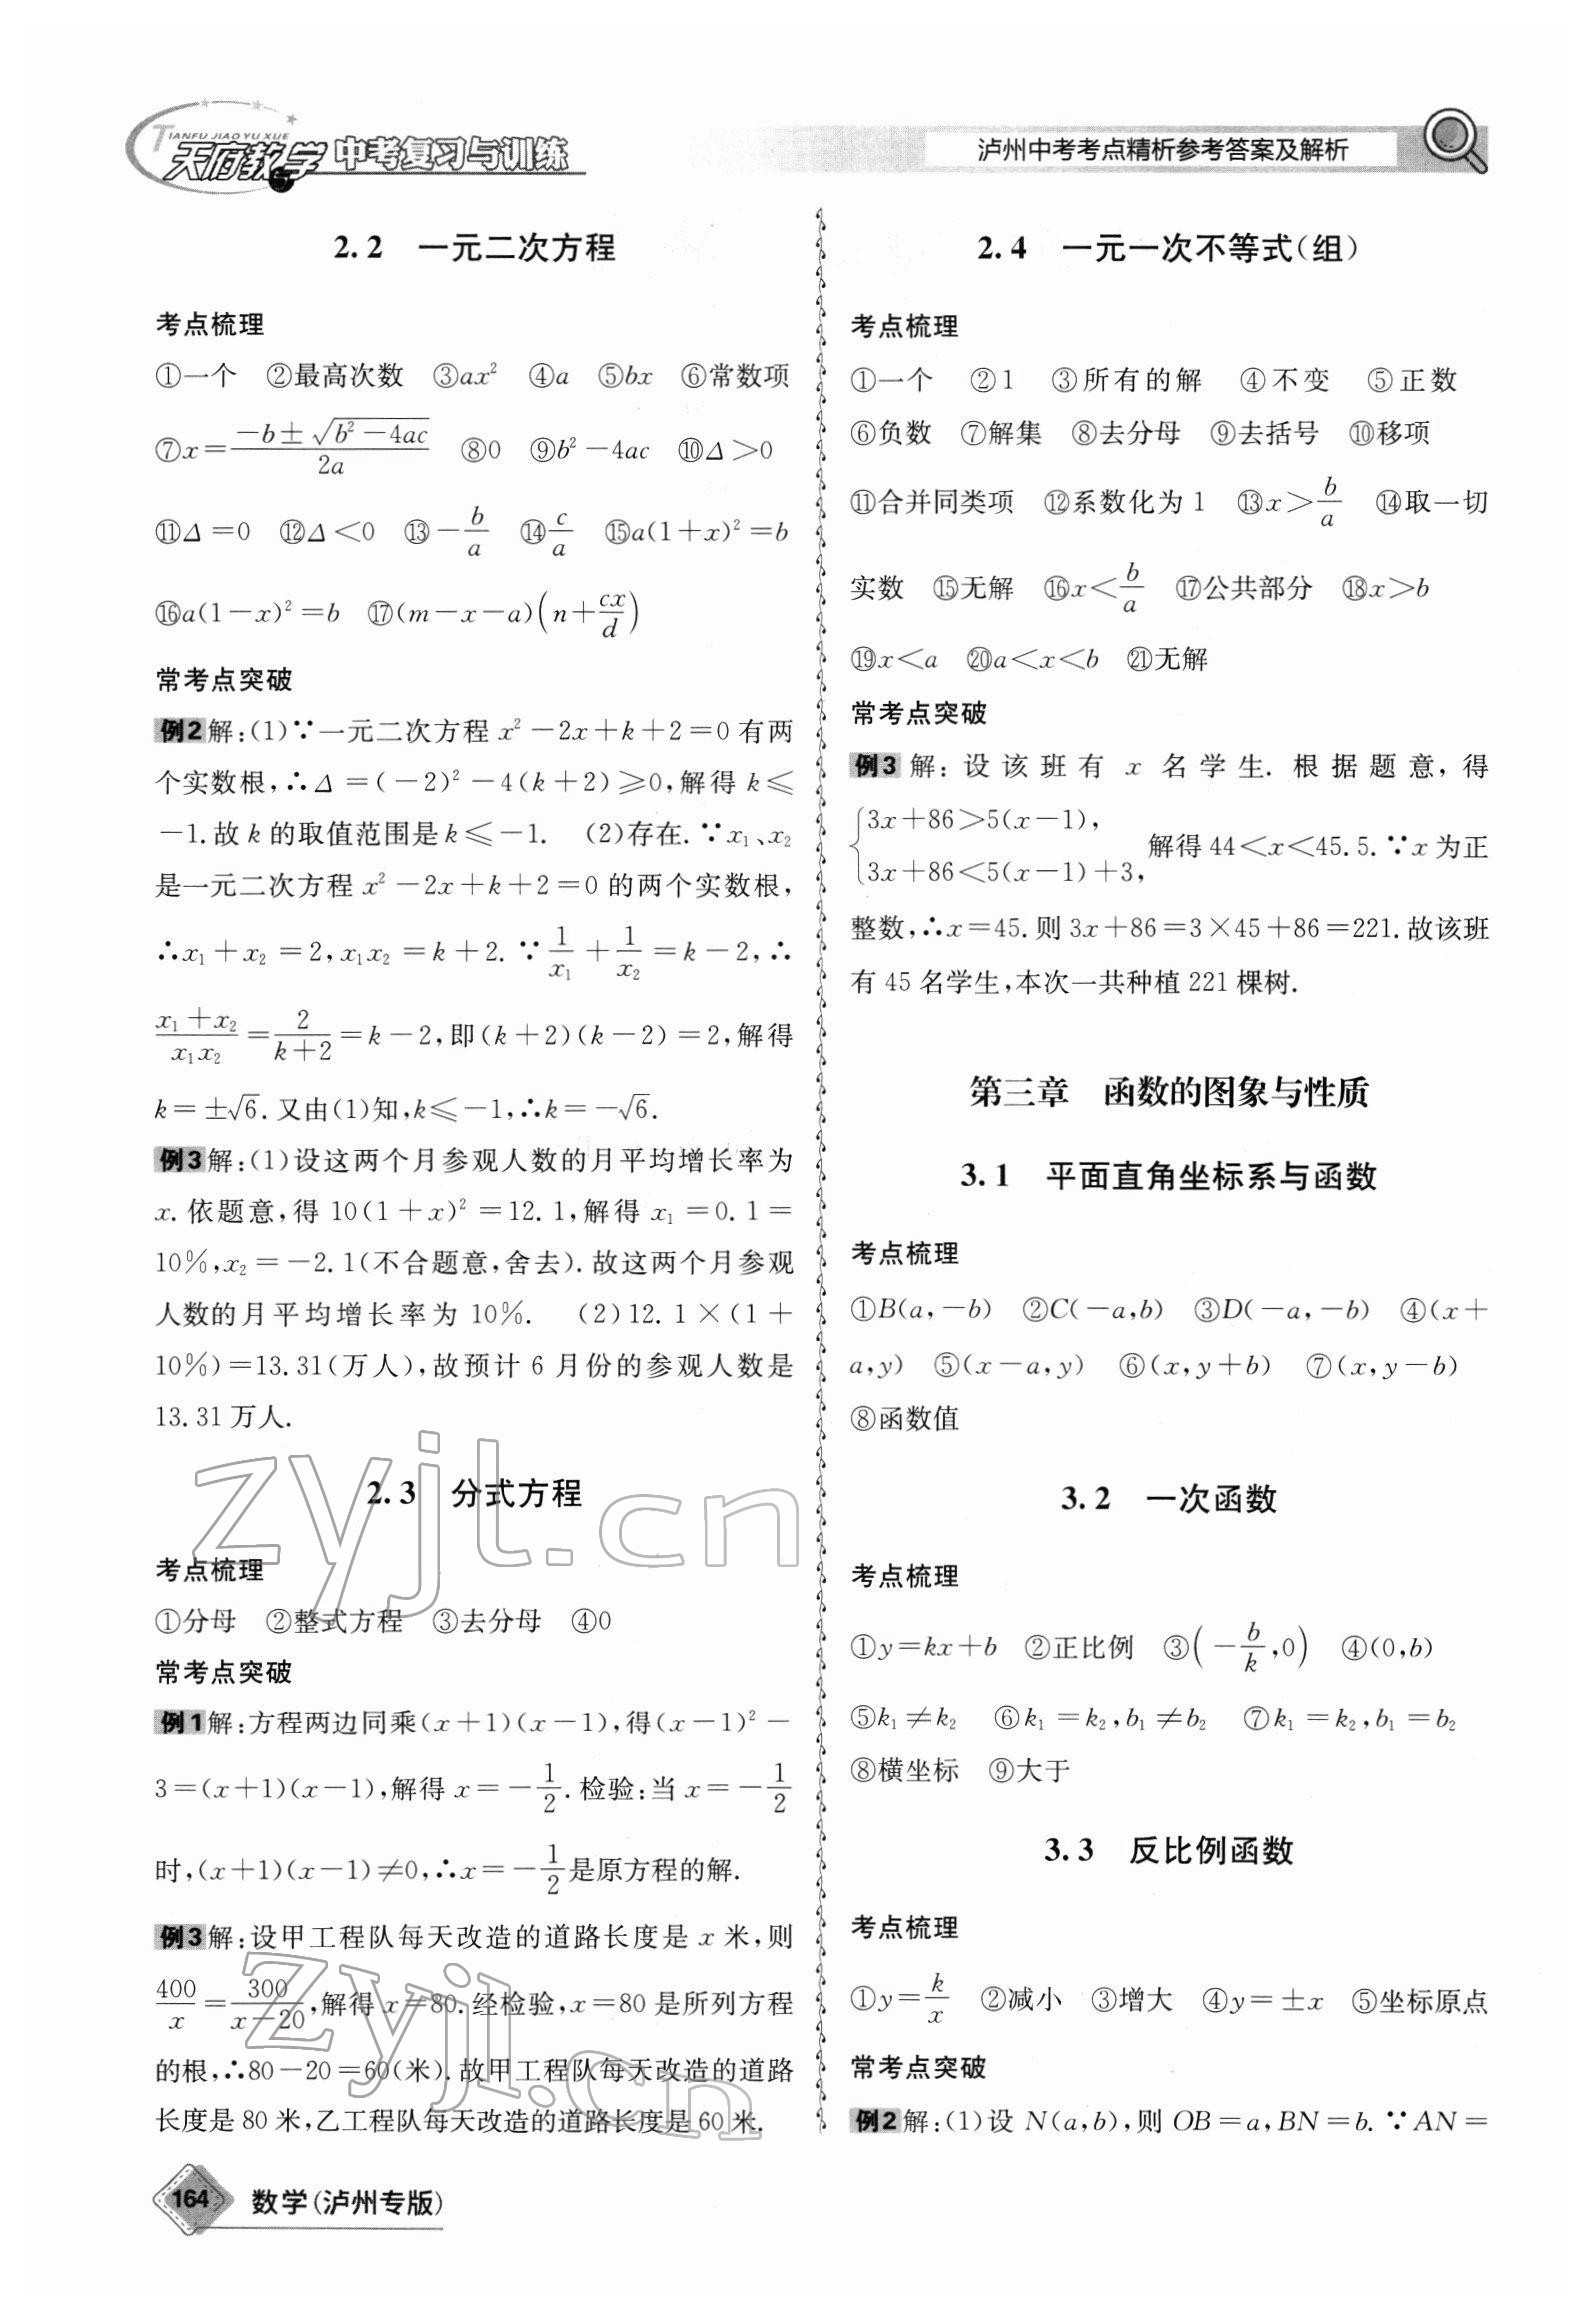 TIANFU JIAO YU XUE
天府教学 中考复习与训练
泸州中考考点精析参考答案及解析
2.2 一元二次方程
考点梳理
①一个 ②最高次数 ③ax² ④a ⑤bx ⑥常数项
⑦x=\frac{-b±\sqrt{b²-4ac}}{2a} ⑧0 ⑨b²-4ac ⑩Δ>0
⑪Δ=0 ⑫Δ<0 ⑬-\frac{b}{a} ⑭\frac{c}{a} ⑮a(1+x)²=b
⑯a(1-x)²=b ⑰(m-x-a)(n+\frac{cx}{d})
常考点突破
例2 解:(1)∵一元二次方程 x²-2x+k+2=0 有两
个实数根,∴Δ=(-2)²-4(k+2)≥0,解得 k≤
-1.故 k 的取值范围是 k≤-1. (2)存在.∵x₁、x₂
是一元二次方程 x²-2x+k+2=0 的两个实数根,
∴x₁+x₂=2,x₁x₂=k+2.∵\frac{1}{x₁}+\frac{1}{x₂}=k-2,∴
\frac{x₁+x₂}{x₁x₂}=\frac{2}{k+2}=k-2,即(k+2)(k-2)=2,解得
k=±√6.又由(1)知,k≤-1,∴k=-√6.
例3 解:(1)设这两个月参观人数的月平均增长率为
x.依题意,得 10(1+x)²=12.1,解得 x₁=0.1=
10%,x₂=-2.1(不合题意,舍去).故这两个月参观
人数的月平均增长率为 10%. (2)12.1×(1+
10%)=13.31(万人),故预计 6 月份的参观人数是
13.31 万人.
2.3 分式方程
考点梳理
①分母 ②整式方程 ③去分母 ④0
常考点突破
例1 解:方程两边同乘(x+1)(x-1),得(x-1)²-
3=(x+1)(x-1),解得 x=-\frac{1}{2}.检验:当 x=-\frac{1}{2}
时,(x+1)(x-1)≠0,∴x=-\frac{1}{2}是原方程的解.
例3 解:设甲工程队每天改造的道路长度是 x 米,则
\frac{400}{x}=\frac{300}{x-20},解得 x=80.经检验,x=80 是所列方程
的根,∴80-20=60(米).故甲工程队每天改造的道路
长度是 80 米,乙工程队每天改造的道路长度是 60 米.
2.4 一元一次不等式(组)
考点梳理
①一个 ②1 ③所有的解 ④不变 ⑤正数
⑥负数 ⑦解集 ⑧去分母 ⑨去括号 ⑩移项
⑪合并同类项 ⑫系数化为 1 ⑬x>\frac{b}{a} ⑭取一切
实数 ⑮无解 ⑯x<\frac{b}{a} ⑰公共部分 ⑱x>b
⑲x<a ⑳a<x<b ㉑无解
常考点突破
例3 解:设该班有 x 名学生.根据题意,得
{3x+86>5(x-1),
3x+86<5(x-1)+3, 解得 44<x<45.5.∵x 为正
整数,∴x=45.则 3x+86=3×45+86=221.故该班
有 45 名学生,本次一共种植 221 棵树.
第三章 函数的图象与性质
3.1 平面直角坐标系与函数
考点梳理
①B(a,-b) ②C(-a,b) ③D(-a,-b) ④(x+
a,y) ⑤(x-a,y) ⑥(x,y+b) ⑦(x,y-b)
⑧函数值
3.2 一次函数
考点梳理
①y=kx+b ②正比例 ③(-\frac{b}{k},0) ④(0,b)
⑤k₁≠k₂ ⑥k₁=k₂,b₁≠b₂ ⑦k₁=k₂,b₁=b₂
⑧横坐标 ⑨大于
3.3 反比例函数
考点梳理
①y=\frac{k}{x} ②减小 ③增大 ④y=±x ⑤坐标原点
常考点突破
例2 解:(1)设 N(a,b),则 OB=a,BN=b.∵AN=
164 数学(泸州专版)
zyjl.cn
zyjl.cn